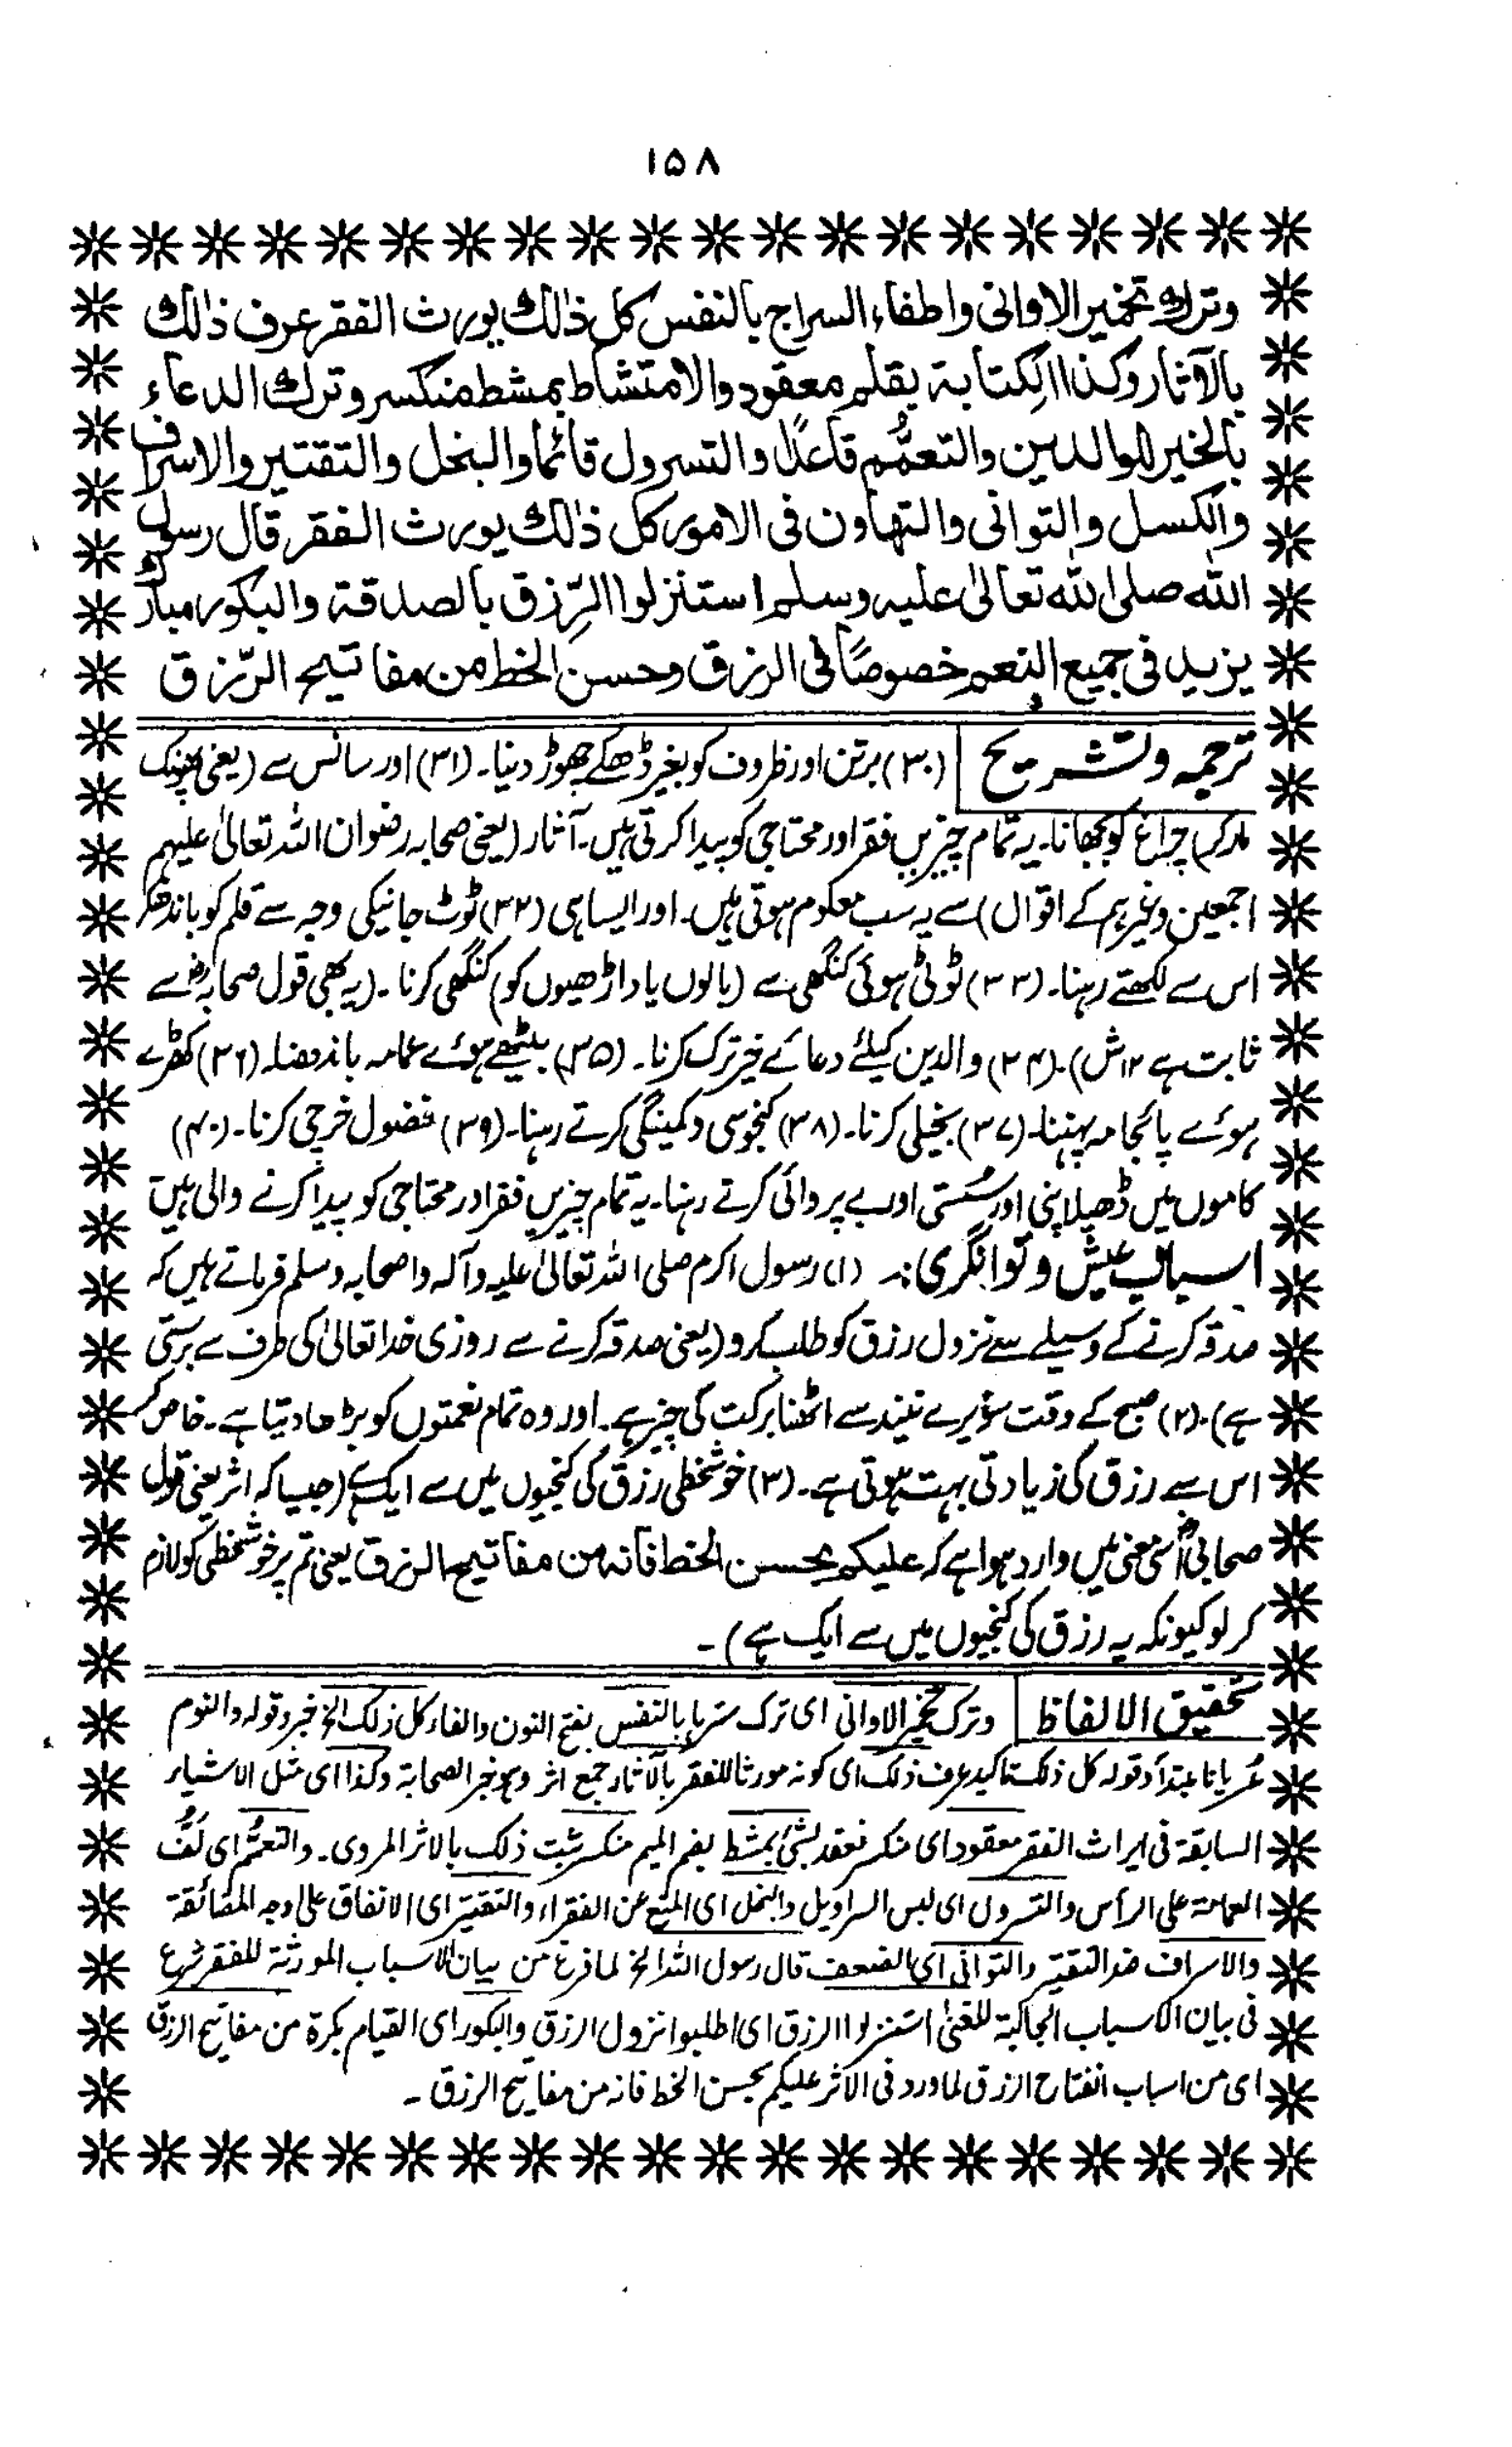 ۱۵۸
وترك تخمير الاوانى واطفاء السراج بالنفس كل ذٰلك يورث الفقر عرف ذٰلك
بالآثار وكذا الكتابة بقلم معقود والامتشاط بمشط منكسر وترك الدعاء
بالخير للوالدين والتعمُّم قاعدًا والتسرول قائما والبخل والتقتير والاسراف
والكسل والتوانى والتهاون فى الامور كل ذٰلك يورث الفقر قال رسول
الله صلى الله تعالىٰ عليه وسلم استنزلوا الرِّزق بالصدقة والبكور مبارك
يزيد فى جميع النعم خصوصًا فى الرزق وحسن الخط من مفاتيح الرّزق
ترجمہ وتشریح (۳۰) برتن اور ظروف کو بغیر ڈھکے چھوڑ دینا۔ (۳۱) اور سانس سے (یعنی پھونک
مار کر) چراغ کو بجھانا۔ یہ تمام چیزیں فقر اور محتاجی کو پیدا کرتی ہیں۔ آثار (یعنی صحابہ رضوان اللہ تعالیٰ علیہم
اجمعین وغیرہم کے اقوال) سے یہ سب معلوم ہوتی ہیں۔ اور ایسا ہی (۳۲) ٹوٹ جانیکی وجہ سے قلم کو باندھکر
اس سے لکھتے رہنا۔ (۳۳) ٹوٹی ہوئی کنگھی سے (بالوں یا داڑھیوں کو) کنگھی کرنا۔ (یہ بھی قول صحابہؓ سے
ثابت ہے ۱۲ ش)۔ (۳۴) والدین کیلئے دعائے خیر ترک کرنا۔ (۳۵) بیٹھے ہوئے عمامہ باندھنا۔ (۳۶) کھڑے
ہوئے پائجامہ پہننا۔ (۳۷) بخیلی کرنا۔ (۳۸) کنجوسی وکمینگی کرتے رہنا۔ (۳۹) فضول خرچی کرنا۔ (۴۰)
کاموں میں ڈھیلا پنی اور سُستی اور بے پروائی کرتے رہنا۔ یہ تمام چیزیں فقر اور محتاجی کو پیدا کرنے والی ہیں
اسباب عیش و توانگری:۔ (۱) رسول اکرم صلی اللہ تعالیٰ علیہ وآلہ واصحابہ وسلم فرماتے ہیں کہ
صدقہ کرنے کے وسیلے سے نزول رزق کو طلب کرو (یعنی صدقہ کرنے سے روزی خدا تعالیٰ کی طرف سے برستی
ہے)۔ (۲) صبح کے وقت سویرے نیند سے اٹھنا برکت کی چیز ہے۔ اور وہ تمام نعمتوں کو بڑھا دیتا ہے۔ خاص کر
اس سے رزق کی زیادتی بہت ہوتی ہے۔ (۳) خوشخطی رزق کی کنجیوں میں سے ایک ہے (جیسا کہ اثر یعنی قول
صحابیؓ اسی معنی میں وارد ہوا ہے کہ علیکم بحسن الخط فانہ من مفاتیح الرزق یعنی تم پر خوشخطی کو لازم
کر لو کیونکہ یہ رزق کی کنجیوں میں سے ایک ہے)۔
تحقیق الالفاظ وترک تخمیر الاوانی ای ترک سترہا بالنفس بفتح النون والفاء کل ذلک الخ خبر وقولہ والنوم
عریانا مبتدأ وقولہ کل ذلک تاکید عرف ذلک ای کونہ مورثا للفقر بالآثار جمع اثر وہو خبر الصحابۃ وکذا ای مثل الاشیاء
السابقۃ فی ایراث الفقر معقود ای منکسر فعقد بشئ بمشط بضم المیم منکسر ثبت ذلک بالاثر المروی۔ والتعمُّم ای لَفُّ
العمامۃ علی الرأس والتسرول ای لبس السراویل والبخل ای المنع عن الفقراء والتقتیر ای الانفاق علی وجہ المضائقۃ
والاسراف ضد التقتیر والتوانی ای الضعف قال رسول اللہ الخ لما فرغ من بیان الاسباب المورثۃ للفقر شرع
فی بیان الاسباب الجالبۃ للغنیٰ استنزلوا الرزق ای اطلبوا نزول الرزق والبکور ای القیام بکرۃ من مفاتیح الرزق
ای من اسباب انفتاح الرزق لما ورد فی الاثر علیکم بحسن الخط فانہ من مفاتیح الرزق ۔